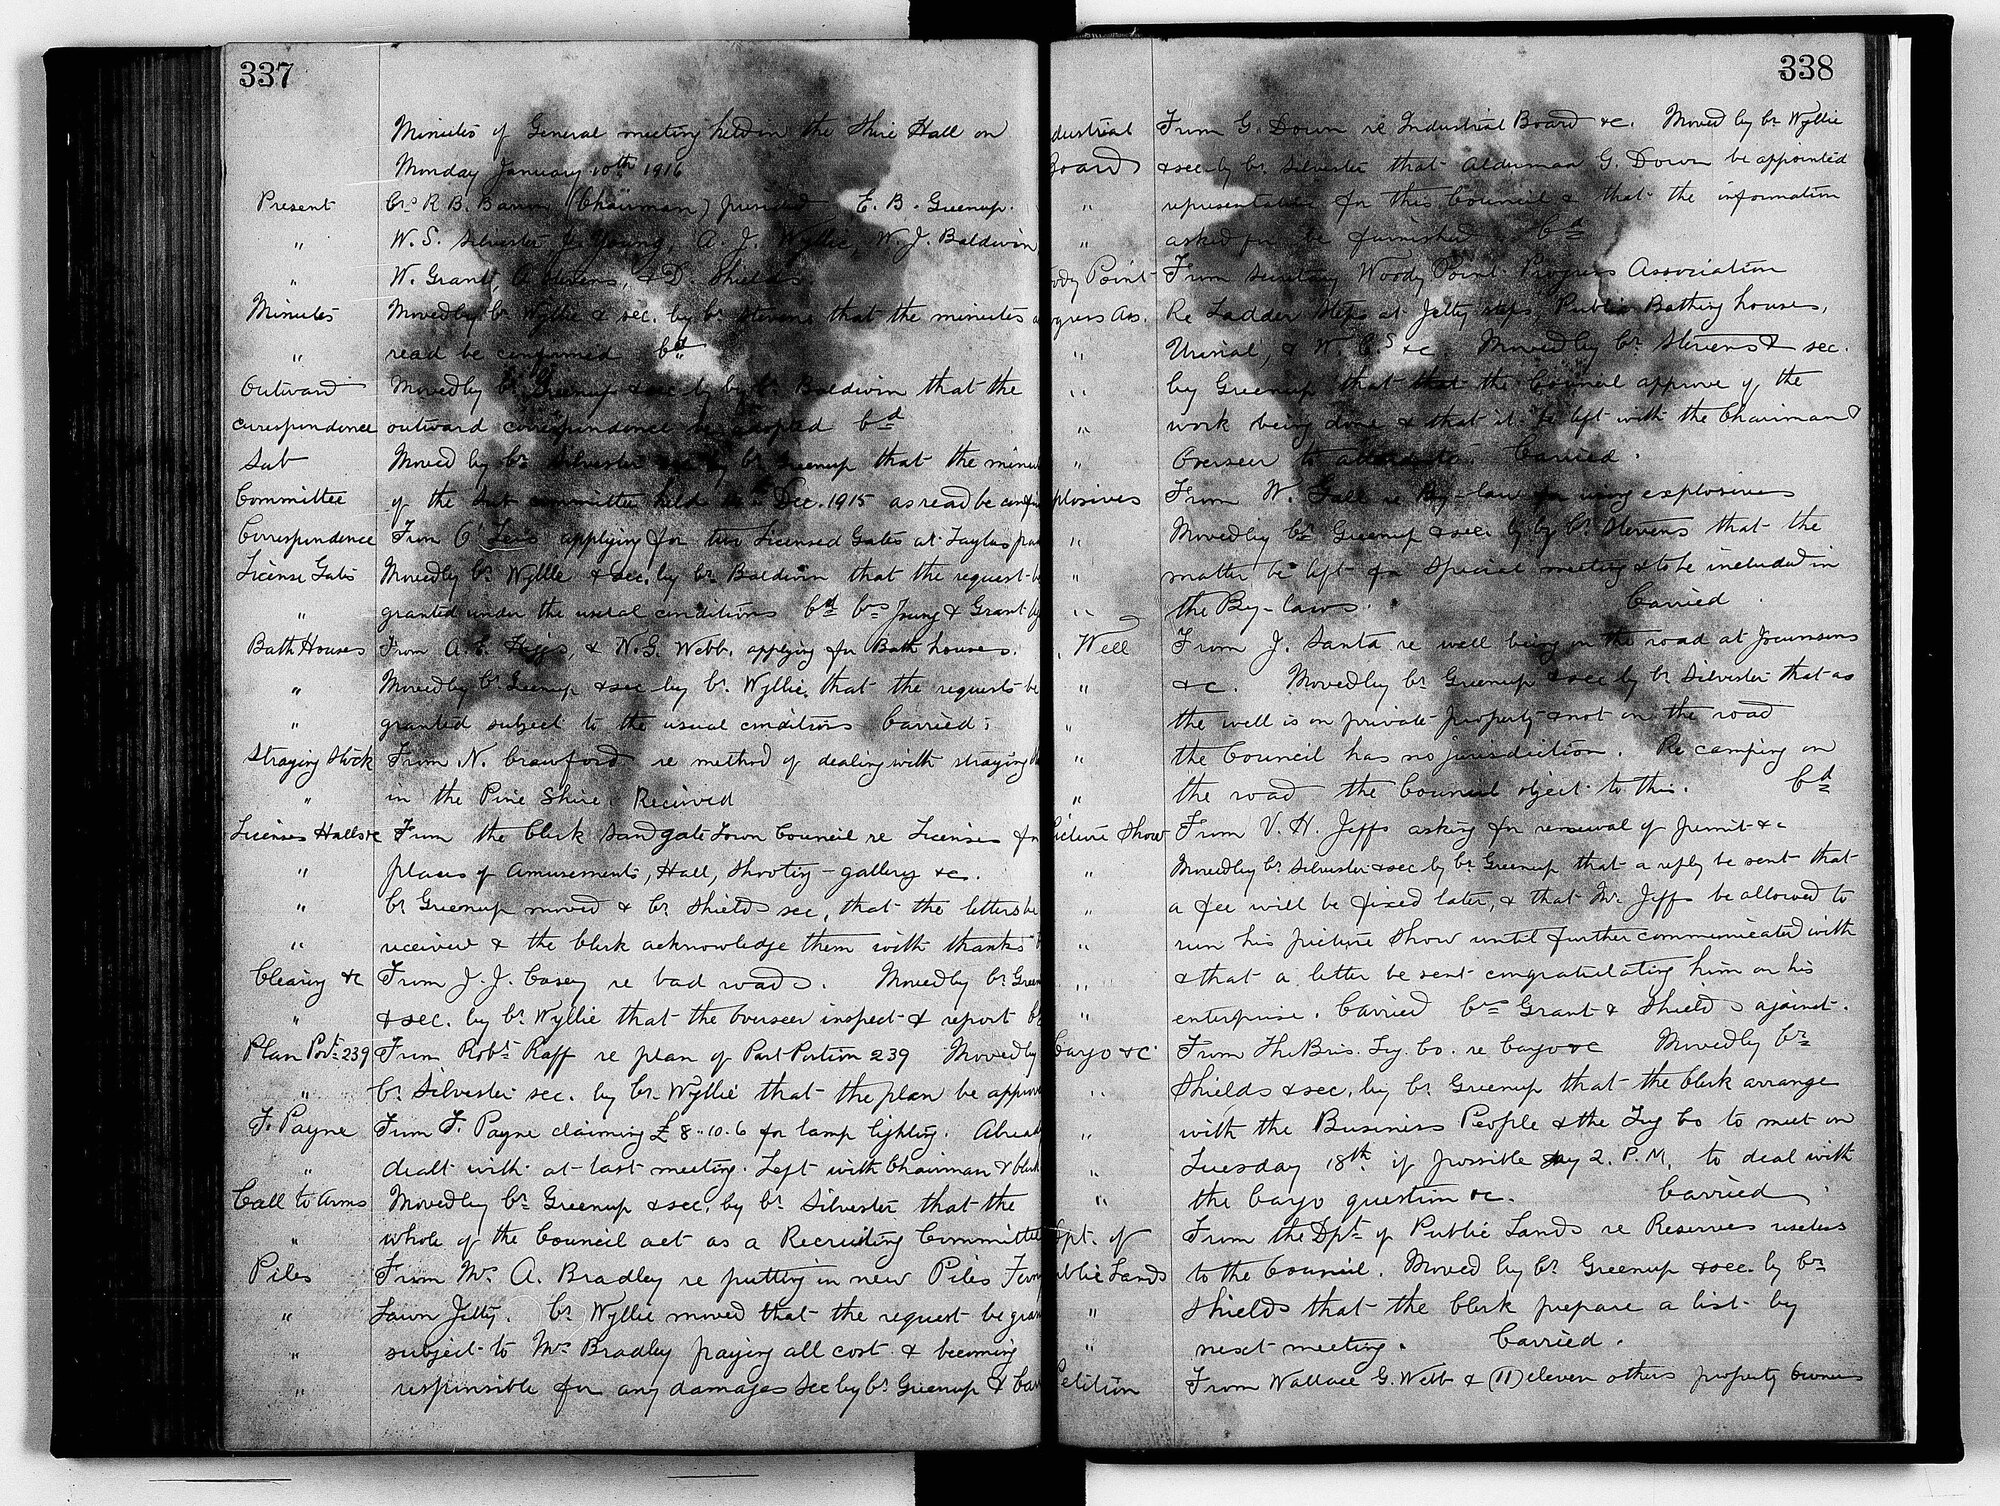 337
Minutes of General meeting held in the Shire Hall on
Monday January 10th 1916
Present Crs R. B. (Chairman) presided E. B. Greenup.
" W. S. Silvester, J. Young, A. J. Wyllie, W. J. Baldwin
" W. Grant, Stevens, & D. Shields
Minutes Moved by Cr. Wyllie & sec. by Cr. Stevens that the minutes as
" read be confirmed Cd
Outward Moved by Cr. Greenup & sec by by Cr. Baldwin that the
Correspondence outward correspondence be adopted Cd
Sub Moved by Cr. Silvester sec by Cr. Greenup that the minu
Committee of the Sub committee held Dec. 1915 as read be confir
Correspondence From applying for two Licensed Gates at Taylors
License Gates Moved by Cr. Wyllie & Sec. by Cr. Baldwin that the request b
" granted under the usual conditions Cd Crs Young & Grant
Bath Houses From A. E. Higgs, & W. G. Webb. applying for Bath houses.
" Moved by Cr. Greenup & sec by Cr. Wyllie, that the requests be
" granted subject to the usual conditions Carried.
Straying Stock From N. Crawford re method of dealing with straying
" in the Pine Shire. Received
Licenses Halls &c From the Clerk Sandgate Town Council re Licenses for
" places of Amusements, Hall, Shooting-gallery &c.
" Cr. Greenup moved & Cr. Shields sec, that the letters be
" received & the Clerk acknowledge them with thanks
Clearing &c From J. J. Casey re bad roads. Moved by Cr. Green
" & sec. by Cr. Wyllie that the Overseer inspect & report
Plan Portn 239 From Robt. Raff re plan of Part Portion 239 Moved by
" Cr. Silvester sec. by Cr. Wyllie that the plan be approv
F. Payne From F. Payne claiming £8..10.6 for lamp lighting. Alread
" dealt with at last meeting. Left with Chairman & Clerk
Call to Arms Moved by Cr. Greenup & sec. by Cr. Silvester that the
" whole of the Council act as a Recruiting Committee
Piles From Mr. A. Bradley re putting in new Piles
" Jetty. Cr. Wyllie moved that the request be gran
" subject to Mr. Bradley paying all cost & becoming
" responsible for any damages sec by Cr. Greenup & Carr
338
dustrial From G. Down re Industrial Board &c. Moved by Cr. Wyllie
Board & sec by Cr. Silvester that Alderman G. Down be appointed
" representative for this Council & that the information
" asked for be furnished Cd
ody Point From Secretary Woody Point Progress Association
ogress Ass. Re Ladder Steps at Jetty steps, Public Bathing houses,
" Urinal, & W.C.s &c. Moved by Cr. Stevens & sec.
" by Greenup that that the Council approve of the
" work being done & that it be left with the Chairman &
" Overseer to Carried.
plosives From W. Gall re By-law for using explosives
" Moved by Cr. Greenup & sec. by by Cr. Stevens that the
" matter be left for Special meeting & to be included in
" the By-laws. Carried
Well From J. Santa re well being on the road at
" &c. Moved by Cr. Greenup & sec by Cr. Silvester that as
" the well is on private property & not on the road
" the Council has no jurisdiction. Re camping on
" the road the Council object to this. Cd
icture Show From V. H. Jeffs asking for renewal of permit &c
" Moved by Cr. Silvester & sec by Cr. Greenup that a reply be sent that
" a fee will be fixed later, & that Mr. Jeffs be allowed to
" run his picture Show until further communicated with
" & that a letter be sent congratulating him on his
" enterprise. Carried Crs Grant & Shields against.
Cargo &c From The Bris. Tug. Co. re Cargo &c Moved by Cr.
" Shields & sec. by Cr. Greenup that the Clerk arrange
" with the Business People & the Tug Co to meet on
" Tuesday 18th if possible say 2. P.M. to deal with
" the Cargo question &c. Carried
Dpt. of From the Dpt. of Public Lands re Reserves useless
ublic Lands to the Council. Moved by Cr. Greenup & sec. by Cr.
" Shields that the Clerk prepare a list by
" next meeting. Carried.
Petition From Wallace G. Webb & (11) eleven others property owners